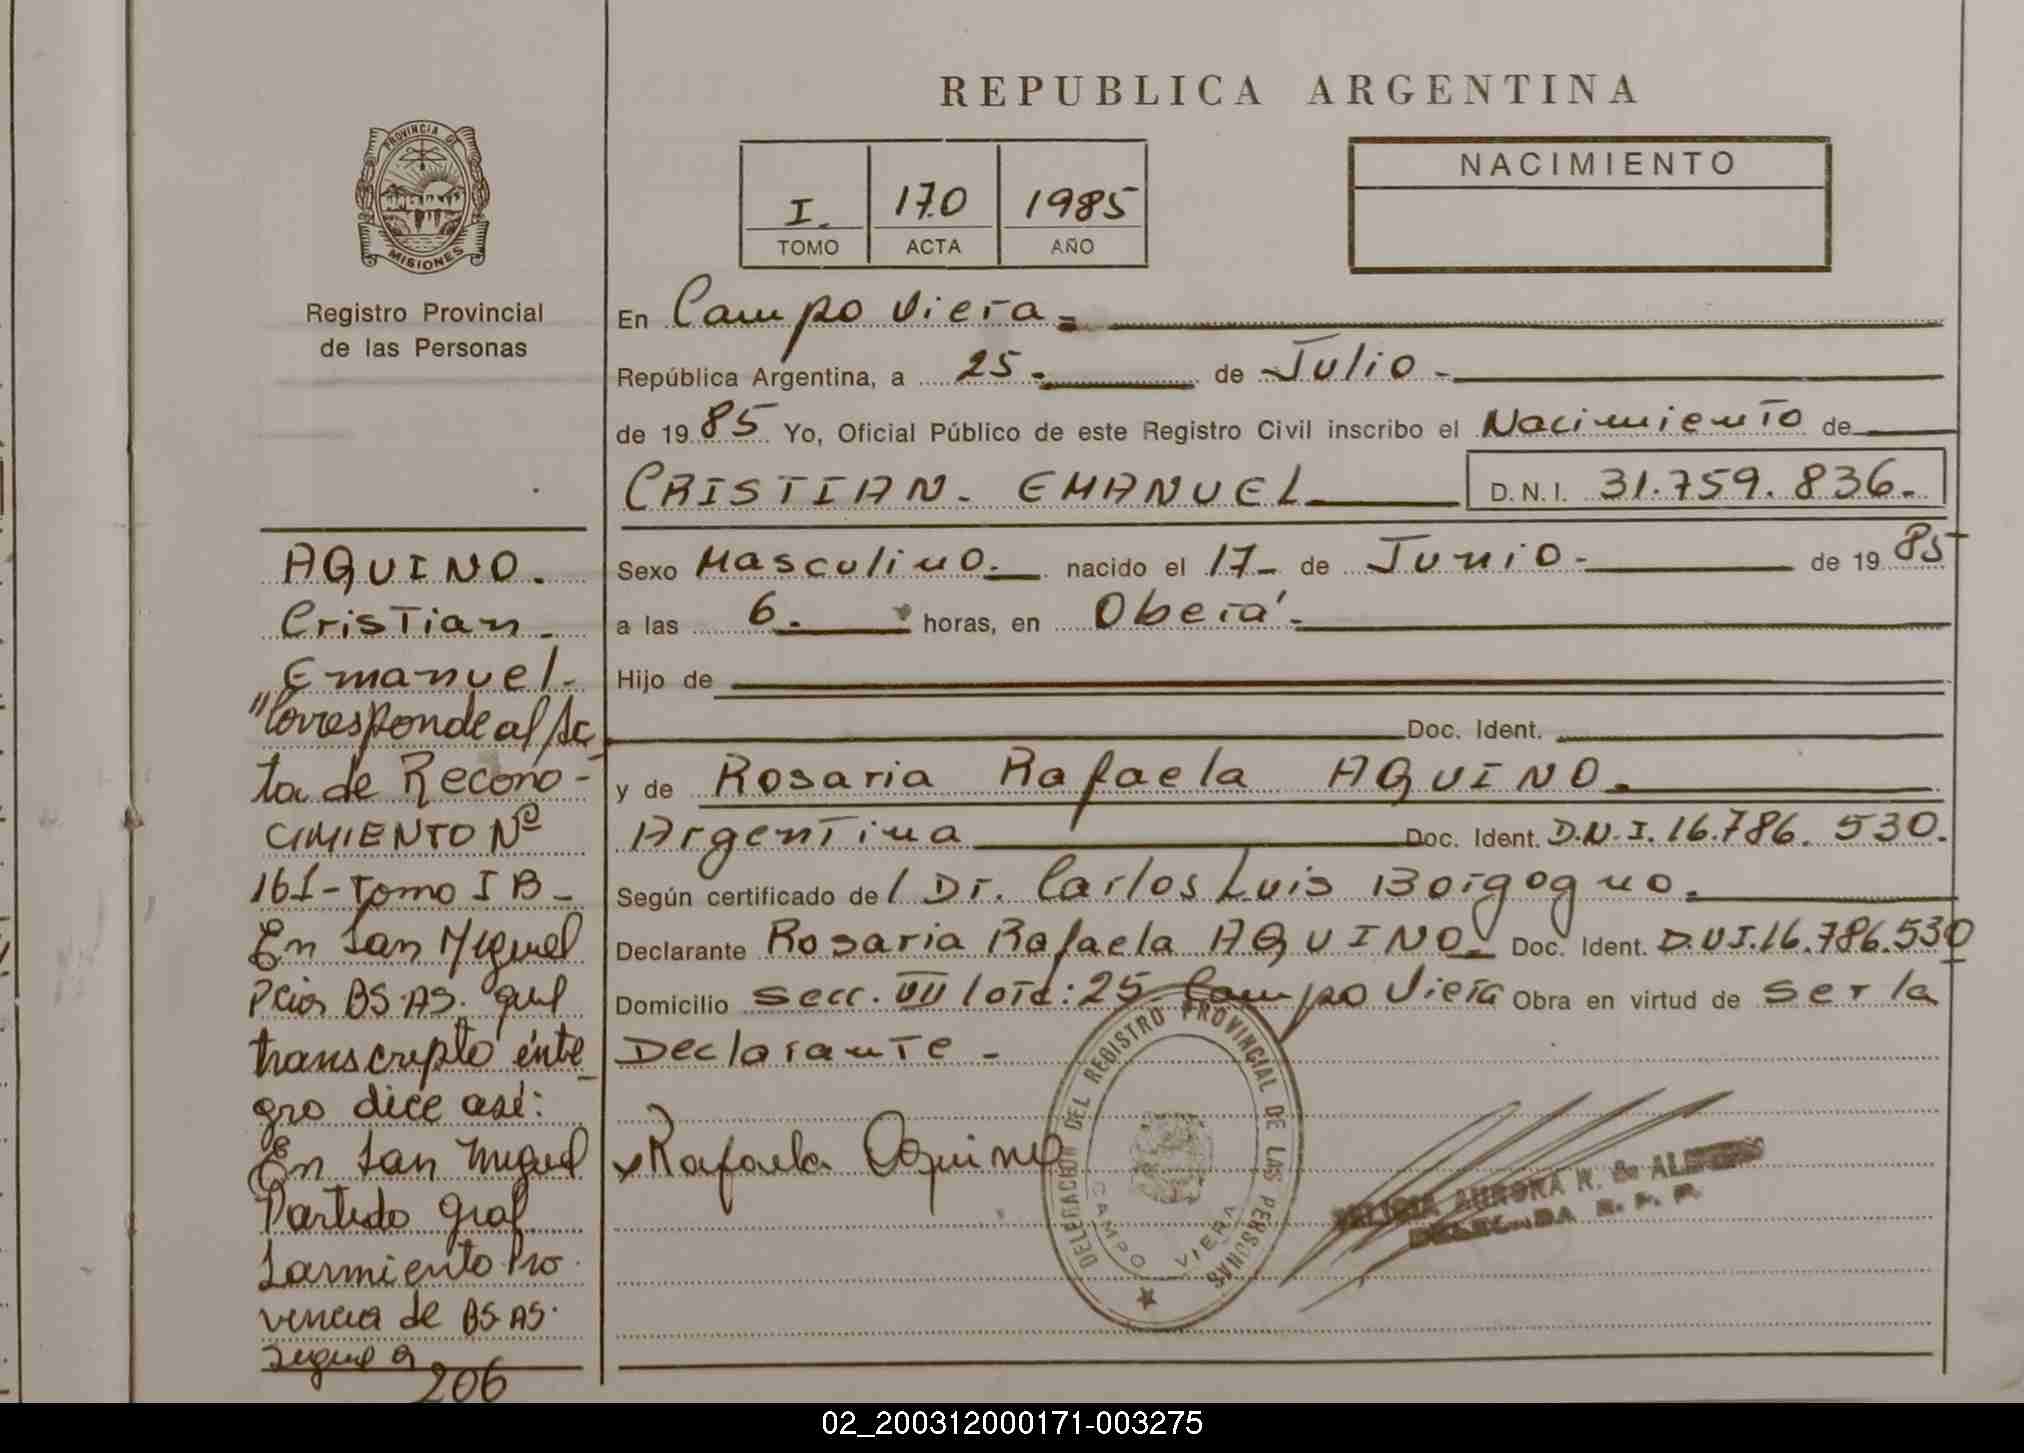 REPUBLICA ARGENTINA
PROVINCIA DE
MISIONES
Registro Provincial
de las Personas
I. 170 1985
TOMO ACTA AÑO
NACIMIENTO
En Campo Viera
República Argentina, a 25 de Julio
de 1985 Yo, Oficial Público de este Registro Civil inscribo el Nacimiento de
CRISTIAN EMANUEL D.N.I. 31.759.836
Sexo Masculino. nacido el 17 de Junio de 1985
a las 6. horas, en Oberá
Hijo de
Doc. Ident.
y de Rosaria Rafaela AQUINO.
Argentina Doc. Ident. D.N.I. 16.786.530.
Según certificado de l Dr. Carlos Luis Borgogno.
Declarante Rosaria Rafaela AQUINO Doc. Ident. D.N.I.16.786.530
Domicilio secc. VII lote: 25 Campo Viera Obra en virtud de ser la
Declarante
Rafaela Aquino
DELEGACION DEL REGISTRO PROVINCIAL DE LAS PERSONAS
CAMPO VIERA
AURORA R. de
DELEGADA R. P. P.
AQUINO.
Cristian
Emanuel
"Corresponde al Ac
ta de Recono-
CIMIENTO Nº
161-Tomo I B
En San Miguel
Pcia BS.AS. que
transcripto ínte
gro dice así:
En San Miguel
Partido Gral
Sarmiento Pro
vincia de BS.AS.
Sigue a
206
02_200312000171-003275